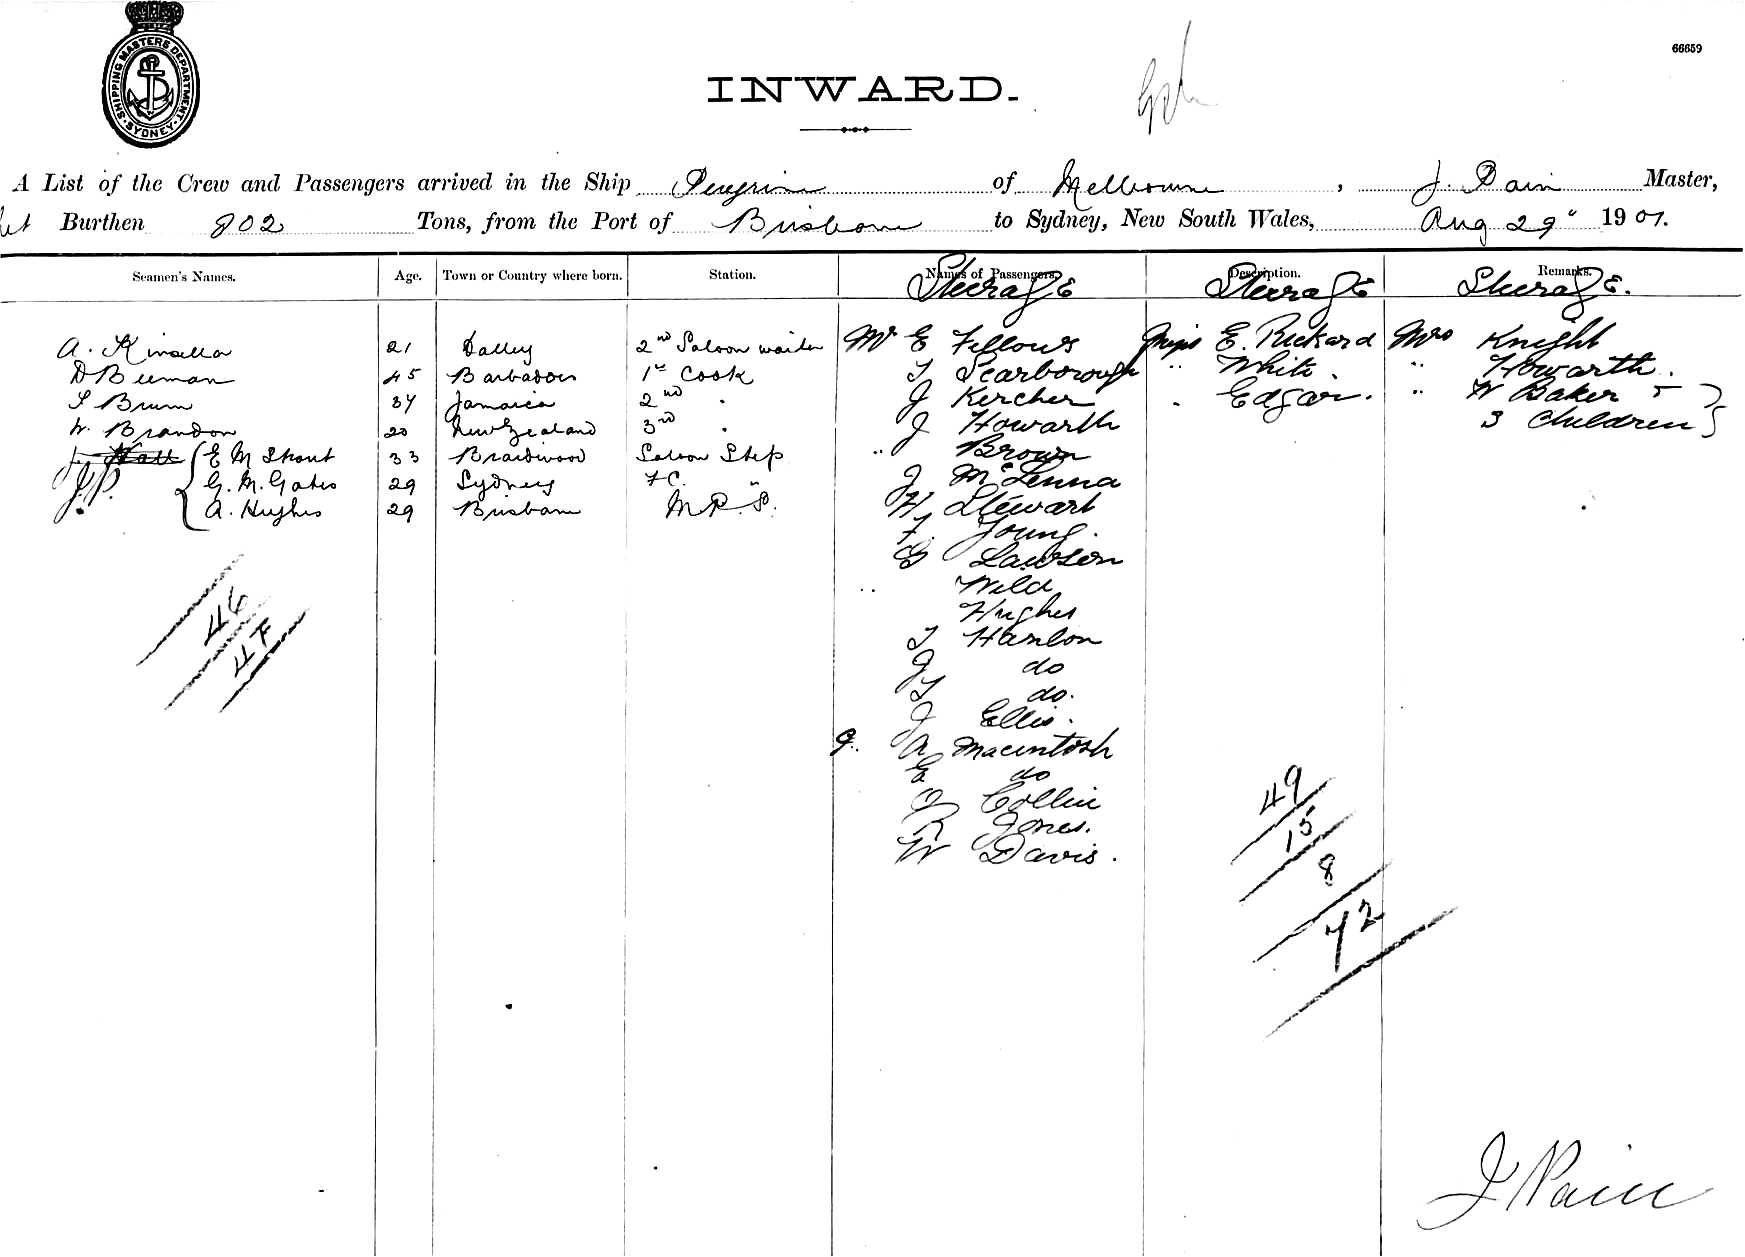 SHIPPING MASTERS DEPARTMENT · SYDNEY ·
66659
INWARD.
A List of the Crew and Passengers arrived in the Ship Peregrine of Melbourne, J. Pain Master,
Burthen 802 Tons, from the Port of Brisbane to Sydney, New South Wales, Aug 29" 1901.
Seamen's Names. Age. Town or Country where born. Station. Names of Passengers. Description. Remarks.
Steerage Steerage Steerage.
A. Kinsella 21 Dalley 2nd Saloon waiter Mr E Fellows Miss E. Rickard Mrs Knight
D Beeman 45 Barbadoes 1st Cook T Scarborough " White. " Howarth.
S Brown 34 Jamaica 2nd " J Kercher " Edgar. " W Baker }
W. Brandon 20 New Zealand 3rd " J Howarth 3 Children }
E M Shout 33 Braidwood Saloon Stess " Brown
J.P. { G. M. Gates 29 Sydney F.C. " J McLenna
A. Hughes 29 Brisbane M.R.S. H Stewart
F. Young.
G Lawson
" Wild
Hughes
T Hanlon
J do
T do.
J Ellis.
A Macintosh
E do
J Collin
R Jones.
W Davis.
46
47
49
15
8
72
J Pain